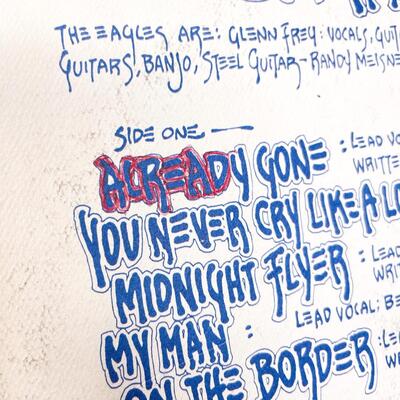 THE EAGLES ARE: GLENN FREY: VOCALS, GUIT
GUITARS, BANJO, STEEL GUITAR-RANDY MEISNE
SIDE ONE —
ALREADY GONE : LEAD VO
WRITTE
YOU NEVER CRY LIKE A LO
MIDNIGHT FLYER : LEAD
WRIT
MY MAN : LEAD VOCAL; BE
ON THE BORDER :LE
WR